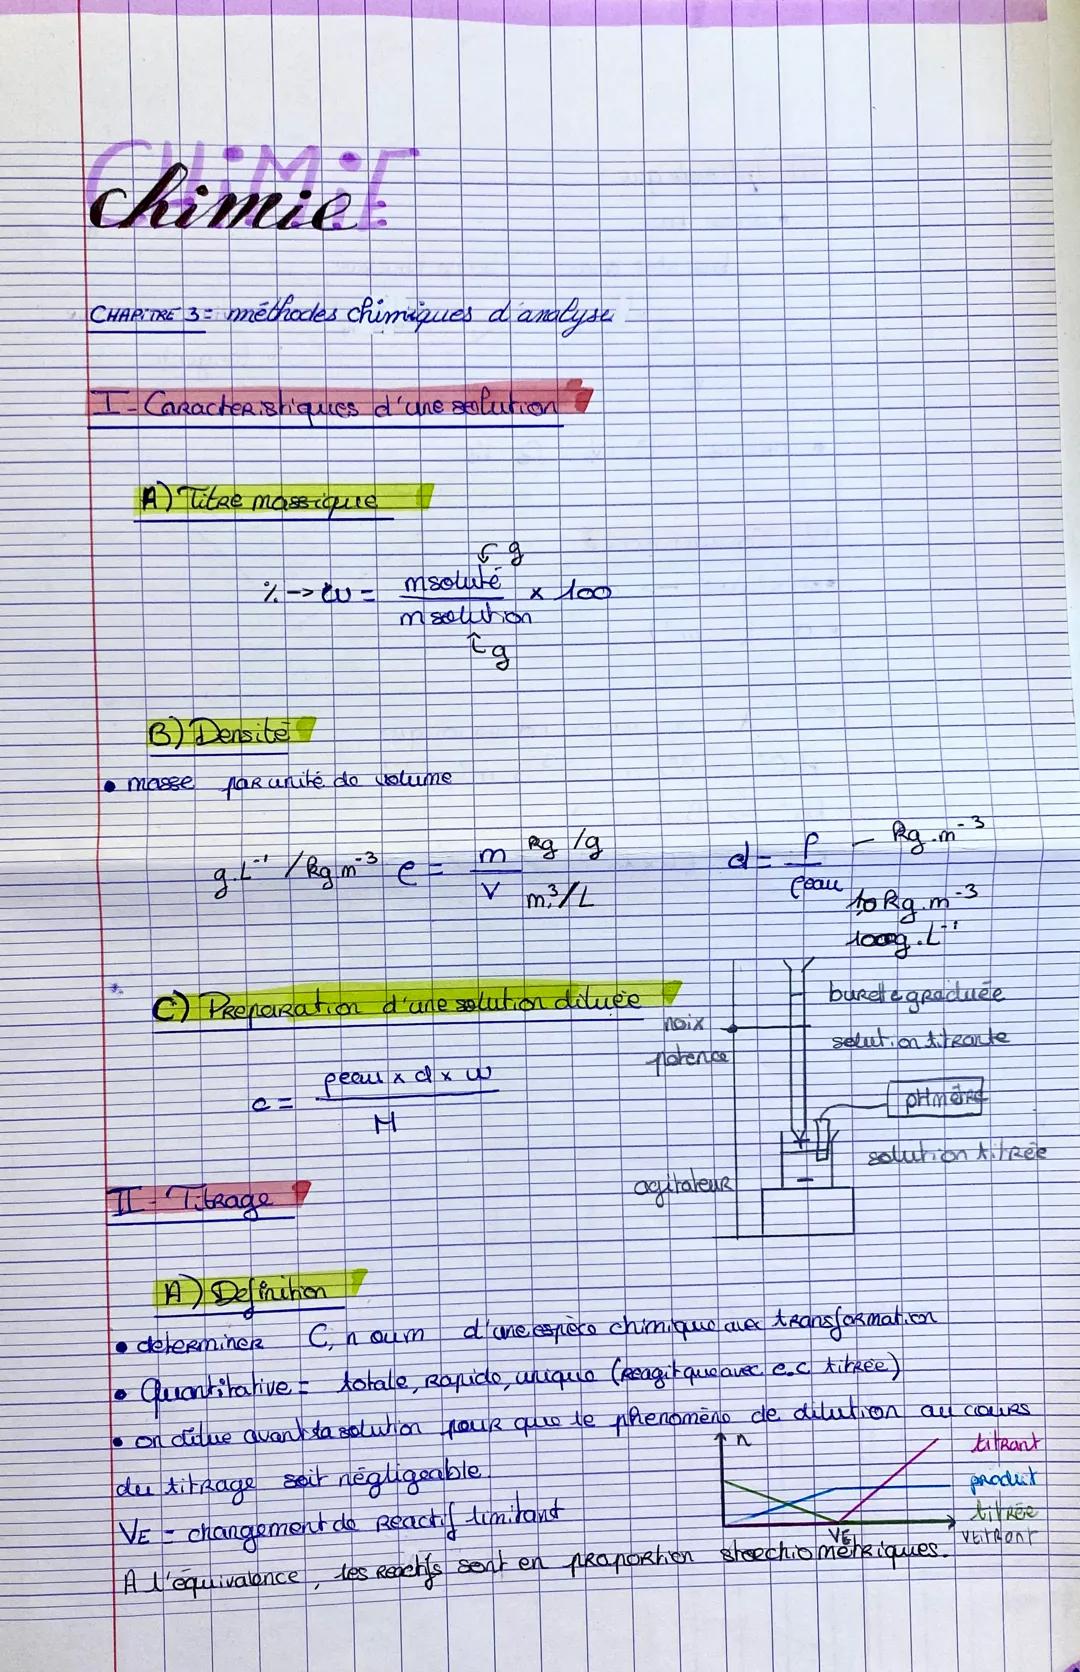 CHiMiE
chimie
CHAPITRE 3 = méthodes chimiques d'analyse
I - Caracteristiques d'une solution
A) Titre massique
g
% -> w = msoluté / msolution × 100
g
B) Densité
• masse par unité de volume
g.L⁻¹ / kg.m⁻³ ρ = m / V kg /g m³/L
d = ρ / ρeau - kg.m⁻³
kg.m⁻³
1000g.L⁻¹
C) Preparation d'une solution diluée
c = ρeau × d × w / M
burette graduée
noix
solution titrante
potence
pHmètre
solution titrée
agitateur
II - Titrage
A) Definition
• determiner C, n oum d'une espèce chimique avec transformation
• Quantitative = totale, rapide, unique (reagit que avec e.c titrée)
• on dilue avant la solution pour que le phenomène de dilution au cours
du titrage soit négligeable
VE = changement de reactif limitant
A l'équivalence, les reactifs sont en proportion stoechiométriques.
n
titrant
produit
titrée
VE
Vtitrant